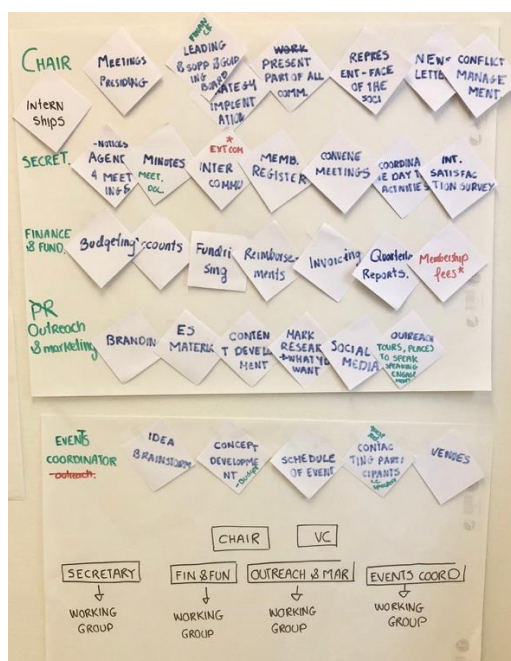 CHAIR
MEETINGS
PRESIDING
FINANCE
LEADING
& SUPP & GUID
ING BOARD
STRATEGY
IMPLENT
ATION
WORK
PRESENT
PART OF ALL
COMM.
REPRES
ENT-FACE
OF THE
SOCI
NEWS
LETTE
CONFLICT
MANAGE
MENT.
INTERN
SHIPS
SECRET.
-NOTICES
AGEND
4 MEET
INGS
MINUTES
MEET.
DOC.
* EXT COM
INTER
COMMU
MEMB.
REGISTER
CONVENE
MEETINGS
COORDINA
E DAY T
ACTIVITIES
INT.
SATISFAC
TION SURVEY
FINANCE
& FUND.
Budgeting
ccounts
Fundri
sing
Reimburse-
ments
Invoicing
Quarterly
Reports.
Membership
fees*
PR
Outreach
& marketing
BRANDIN
ES
MATERIA
CONTEN
T DEVELOP
MENT
MARK
RESEAR
+WHAT YOU
WANT
SOCIAL
MEDIA
OUTREACH
TOURS, PLACES
TO SPEAK
SPEAKING
ENGAGE
MENT
EVENTS
COORDINATOR
-outreach.
IDEA
BRAINSTORM
CONCEPT
DEVELOPME
NT -Budget
SCHEDULE
OF EVENT
CONTAC
TING PARTI
CIPANTS
VENUES
CHAIR VC
SECRETARY FIN & FUN OUTREACH & MAR EVENTS COORD
WORKING WORKING WORKING WORKING
GROUP GROUP GROUP GROUP